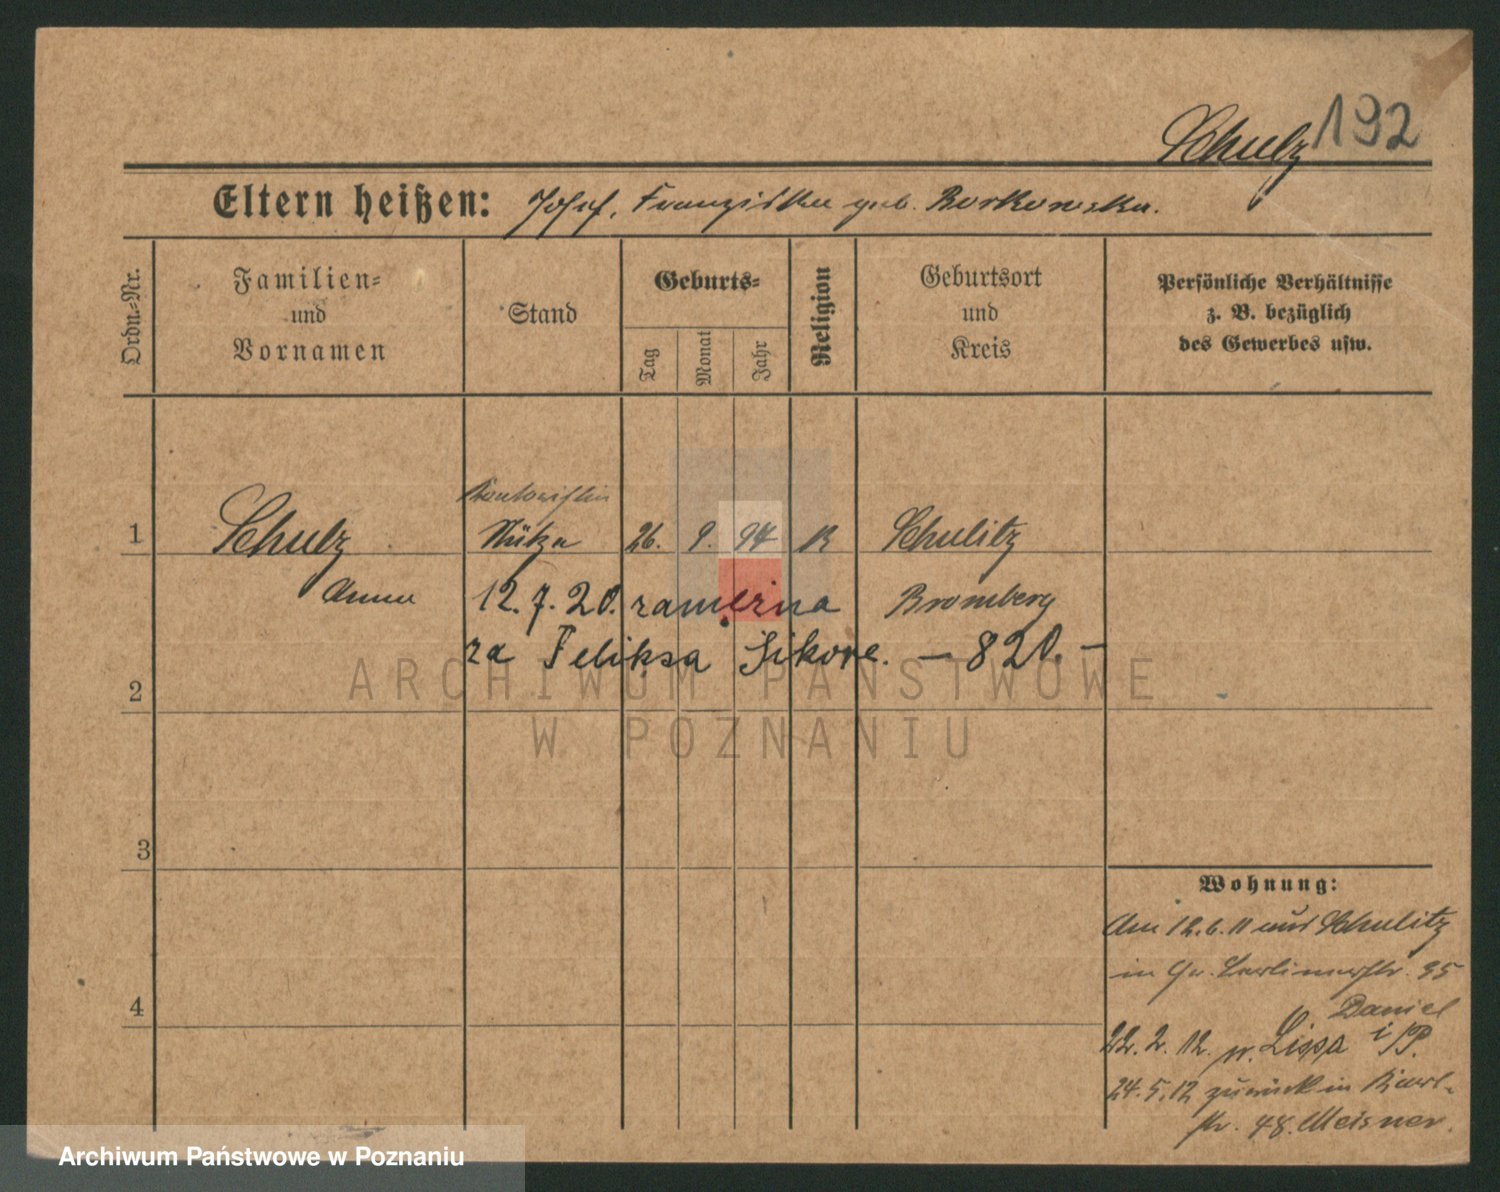 Schulz 192
Eltern heißen: Josef, Franziska geb. Borkowska.
Ordn.-Nr.
Familien-
und
Vornamen
Stand
Geburts-
Tag
Monat
Jahr
Religion
Geburtsort
und
Kreis
Persönliche Verhältnisse
z. B. bezüglich
des Gewerbes usw.
Kontoristin
1 Schulz Stütze 26. 9. 94 K Schulitz
Anna 12.7.20. zamężna Bromberg
za Feliksa Sikorę. — 820. —
2
3
4
Wohnung:
Am 12.6.11 aus Schulitz
in Gr. Berlinerstr. 95
Daniel
22.2.12. n. Lissa i/P.
24.5.12 zurück in Karl-
str. 48. Meisner.
ARCHIWUM PAŃSTWOWE
W POZNANIU
Archiwum Państwowe w Poznaniu